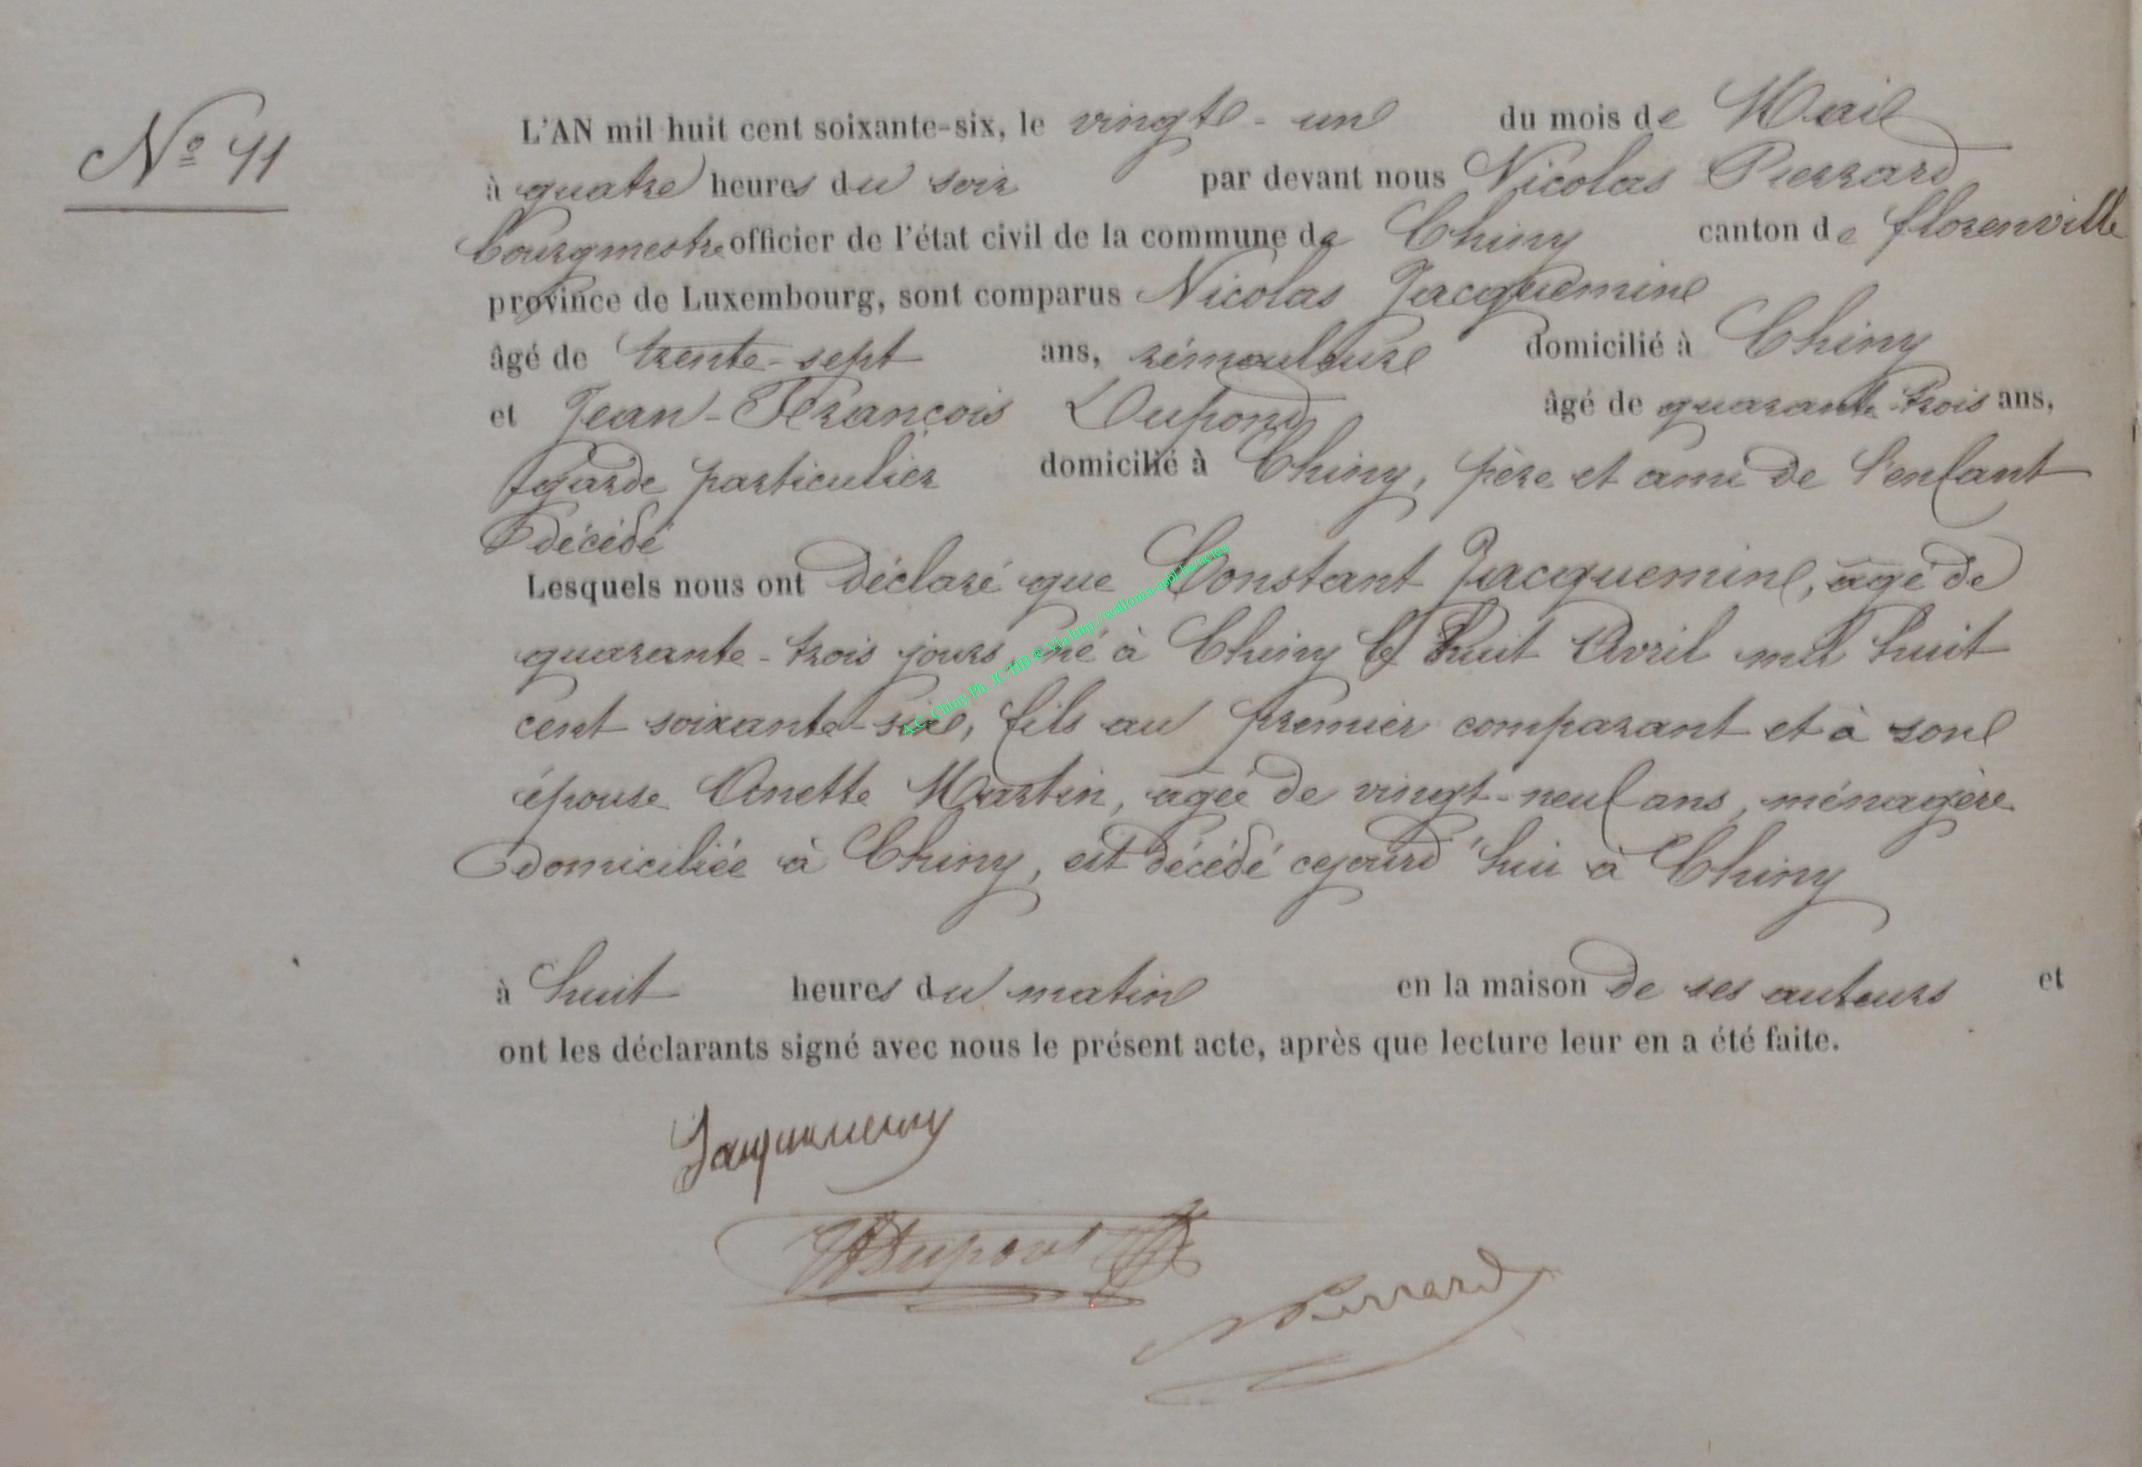 Nº 11
L'AN mil huit cent soixante-six, le vingt-un du mois de Mai
à quatre heures du soir par devant nous Nicolas Pierrard
bourgmestre officier de l'état civil de la commune de Chiny canton de florenville
province de Luxembourg, sont comparus Nicolas Jacquemin
âgé de trente-sept ans, rémouleur domicilié à Chiny
et Jean-François Dupond âgé de quarante-trois ans,
garde particulier domicilié à Chiny, père et ami de l'enfant
décédé
Lesquels nous ont déclaré que Constant Jacquemin, âgé de
quarante-trois jours, né à Chiny le huit Avril mil huit
cent soixante-six, fils au premier comparant et à son
épouse Anette Martin, agée de vingt-neuf ans, ménagère
domiciliée à Chiny, est décédé cejourd'hui à Chiny
à huit heures du matin en la maison de ses auteurs et
ont les déclarants signé avec nous le présent acte, après que lecture leur en a été faite.
Jacquemin
Dupont
NPierrard